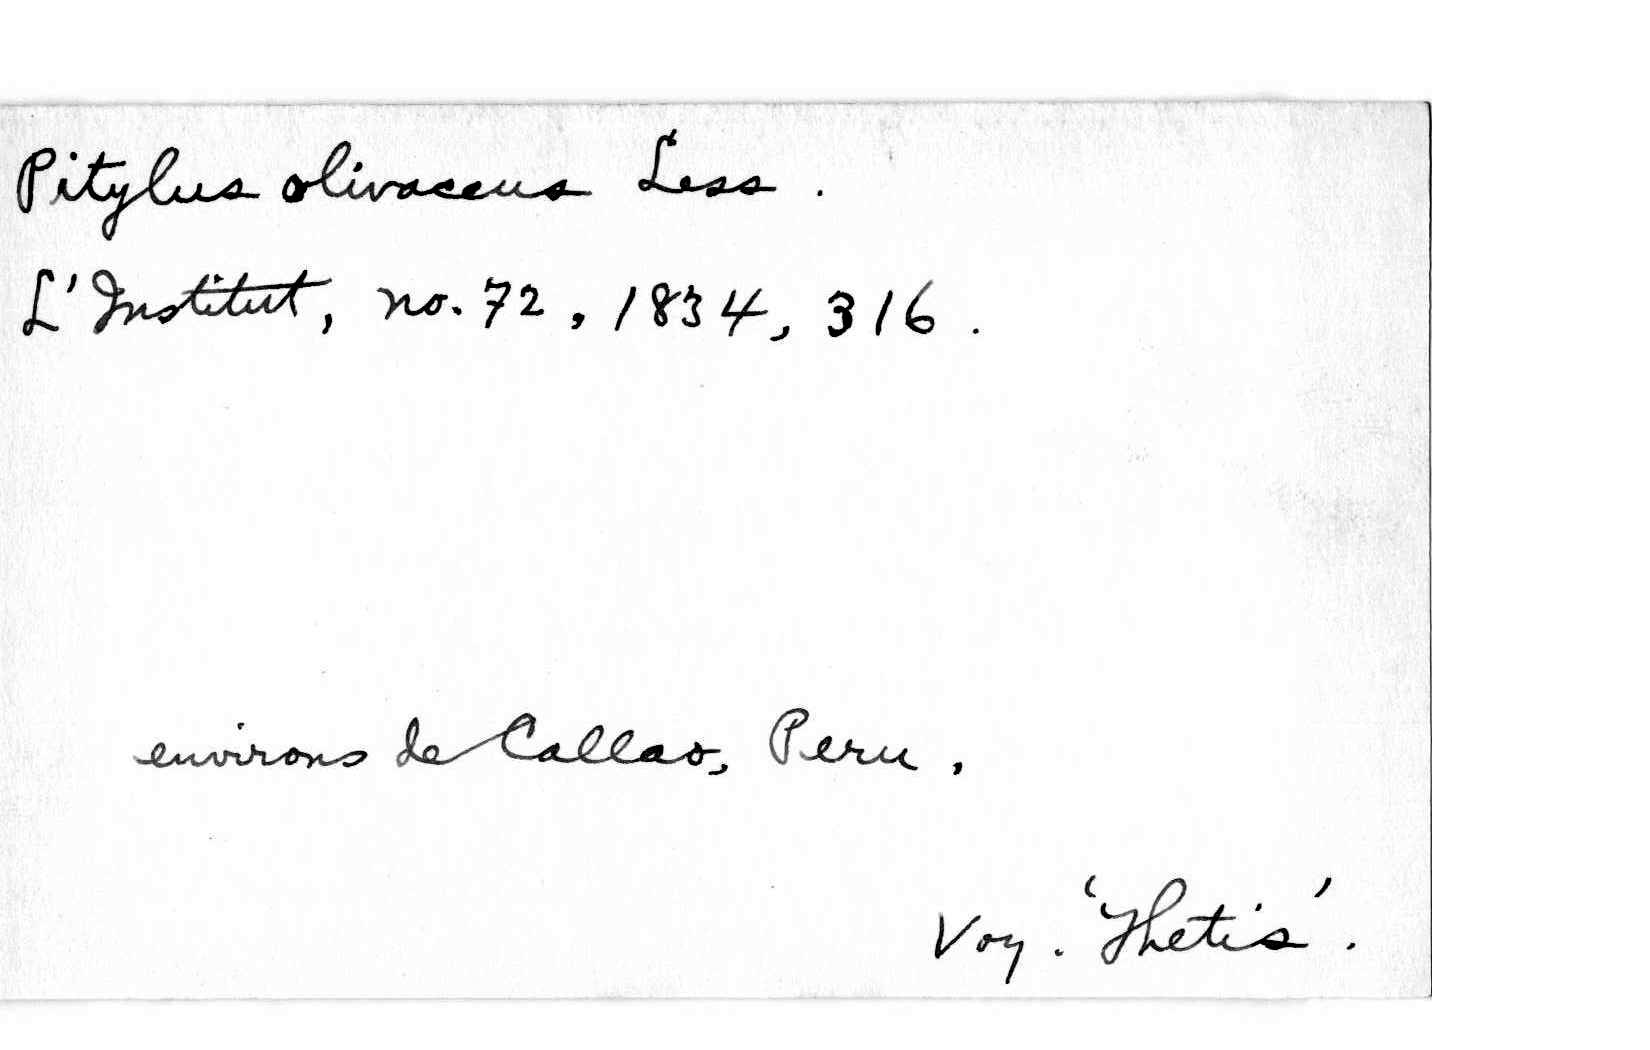 Pitylus olivaceus Less.
L'Institut, no. 72, 1834, 316.
environs de Callao, Peru.
Voy. 'Thetis'.